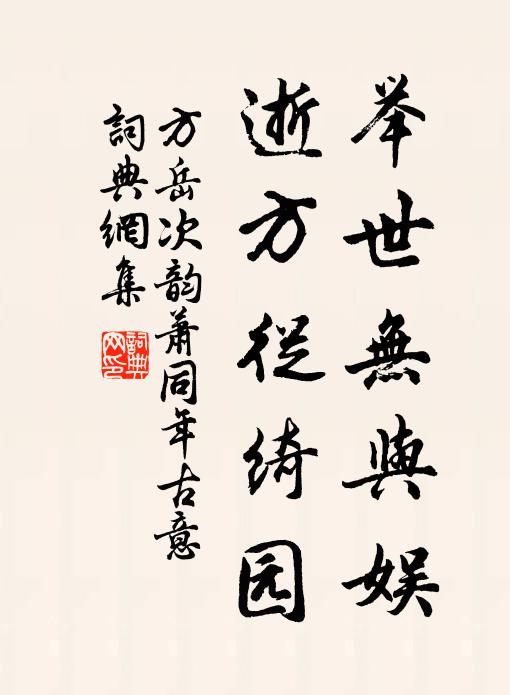 举世無與娱
逝方從绮园
方岳次韵萧同年古意
詞典網集
詞典网印